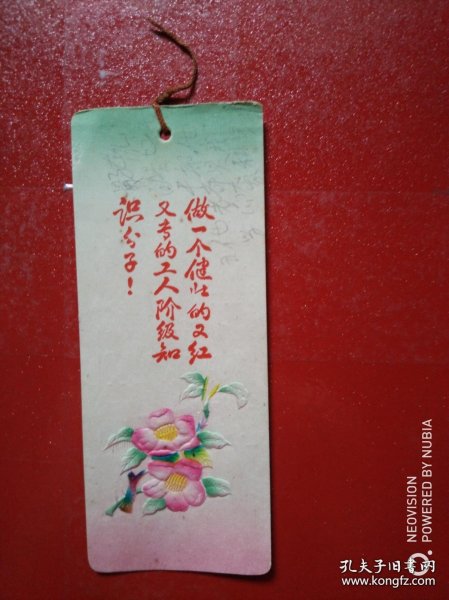 做一个健壮的又红
又专的工人阶级知
识分子！
NEOVISION
POWERED BY NUBIA
孔夫子旧书网
www.kongfz.com